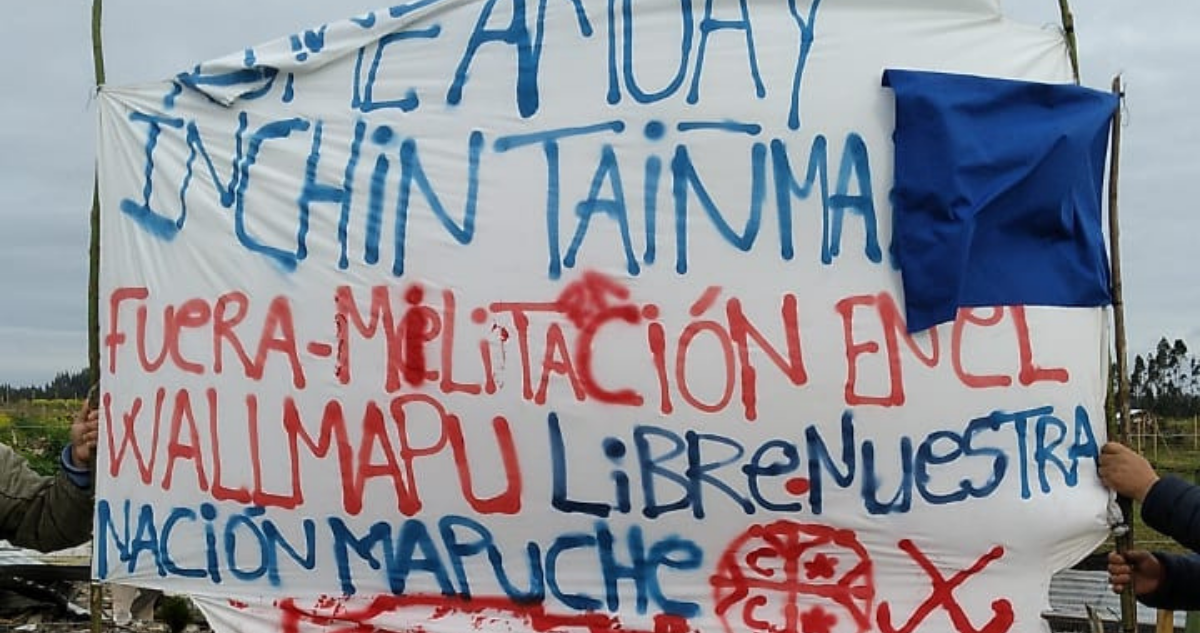 EAMUAY
INCHiN TAiÑ MA
FUeRA-MiLiTACiÓN EN eL
WALLMAPU LiBRe. NUeSTRA
NACiÓN MAPUCHe